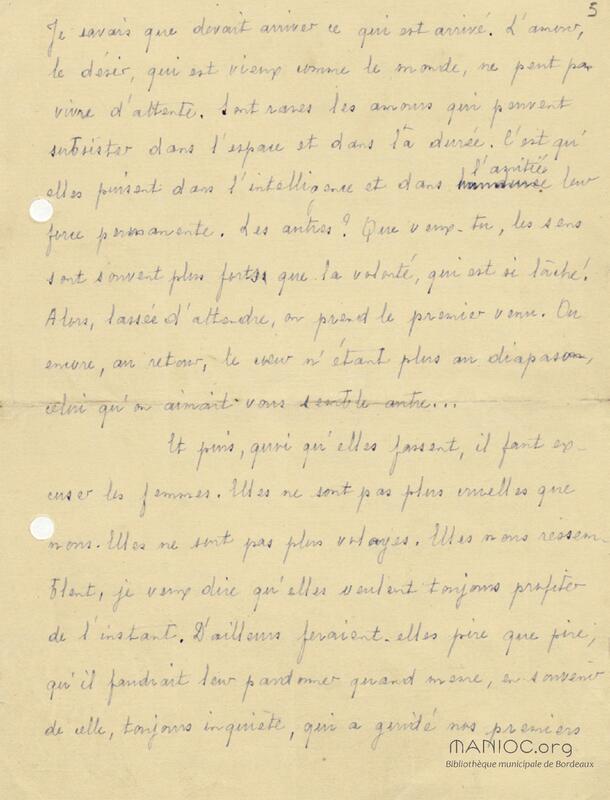 5
Je savais que devait arriver ce qui est arrivé. L'amour,
le désir, qui est vieux comme le monde, ne peut pas
vivre d'attente. Sont rares les amours qui peuvent
subsister dans l'espace et dans la durée. C'est qu'
l'amitié
elles puisent dans l'intelligence et dans leur
force permanente. Les autres ? Que veux-tu, les sens
sont souvent plus forts que la volonté, qui est si lâche !
Alors, lassée d'attendre, on prend le premier venu. Ou
encore, au retour, le cœur n'étant plus au diapason,
celui qu'on aimait vous semble autre...
Et puis, quoi qu'elles fassent, il faut ex-
cuser les femmes. Elles ne sont pas plus cruelles que
nous. Elles ne sont pas plus volages. Elles nous ressem-
blent, je veux dire qu'elles veulent toujours profiter
de l'instant. D'ailleurs feraient-elles pire que pire,
qu'il faudrait leur pardonner quand même, en souvenir
de celle, toujours inquiète, qui a guidé nos premiers
MANIOC.org
Bibliothèque municipale de Bordeaux